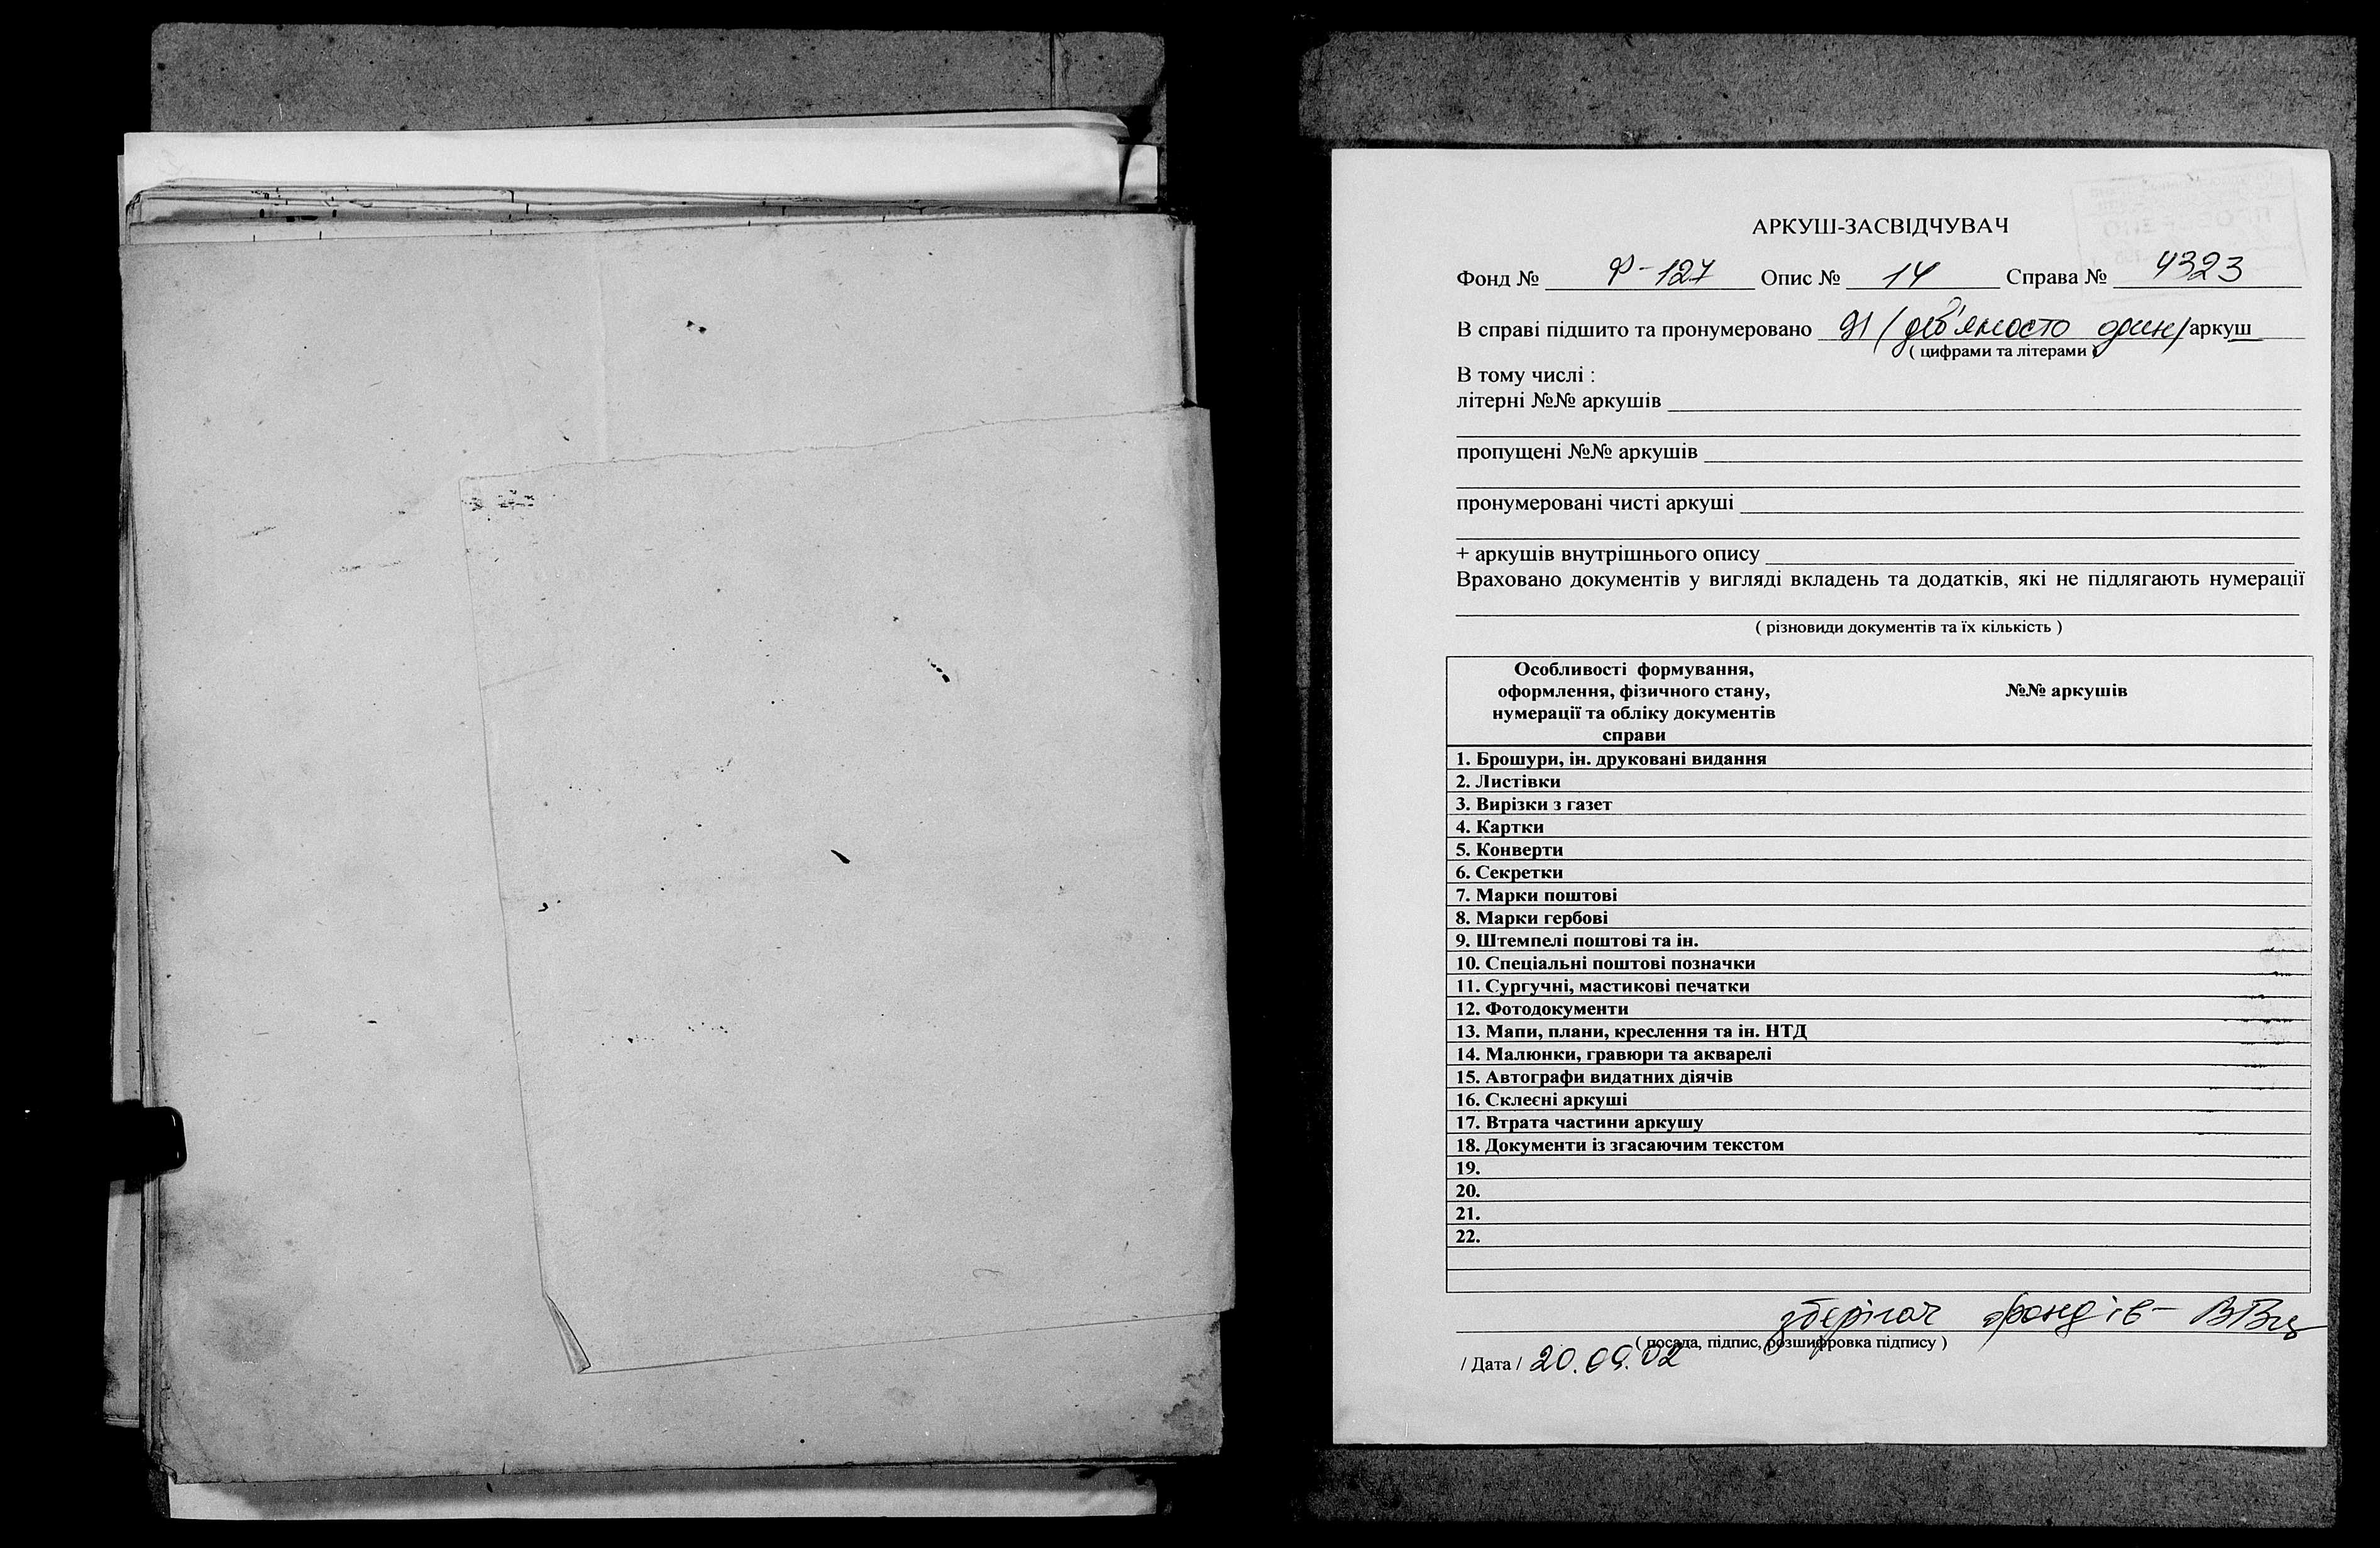 АРКУШ-ЗАСВІДЧУВАЧ
Фонд № Ф-127 Опис № 14 Справа № 4323
В справі підшито та пронумеровано 91 (дев'яносто один) аркуш
( цифрами та літерами )
В тому числі :
літерні №№ аркушів
пропущені №№ аркушів
пронумеровані чисті аркуші
+ аркушів внутрішнього опису
Враховано документів у вигляді вкладень та додатків, які не підлягають нумерації
( різновиди документів та їх кількість )
Особливості формування,
оформлення, фізичного стану,
нумерації та обліку документів
справи
№№ аркушів
1. Брошури, ін. друковані видання
2. Листівки
3. Вирізки з газет
4. Картки
5. Конверти
6. Секретки
7. Марки поштові
8. Марки гербові
9. Штемпелі поштові та ін.
10. Спеціальні поштові позначки
11. Сургучні, мастикові печатки
12. Фотодокументи
13. Мапи, плани, креслення та ін. НТД
14. Малюнки, гравюри та акварелі
15. Автографи видатних діячів
16. Склеєні аркуші
17. Втрата частини аркушу
18. Документи із згасаючим текстом
19.
20.
21.
22.
зберігач фондів -
( посада, підпис, розшифровка підпису )
/ Дата / 20.09.02